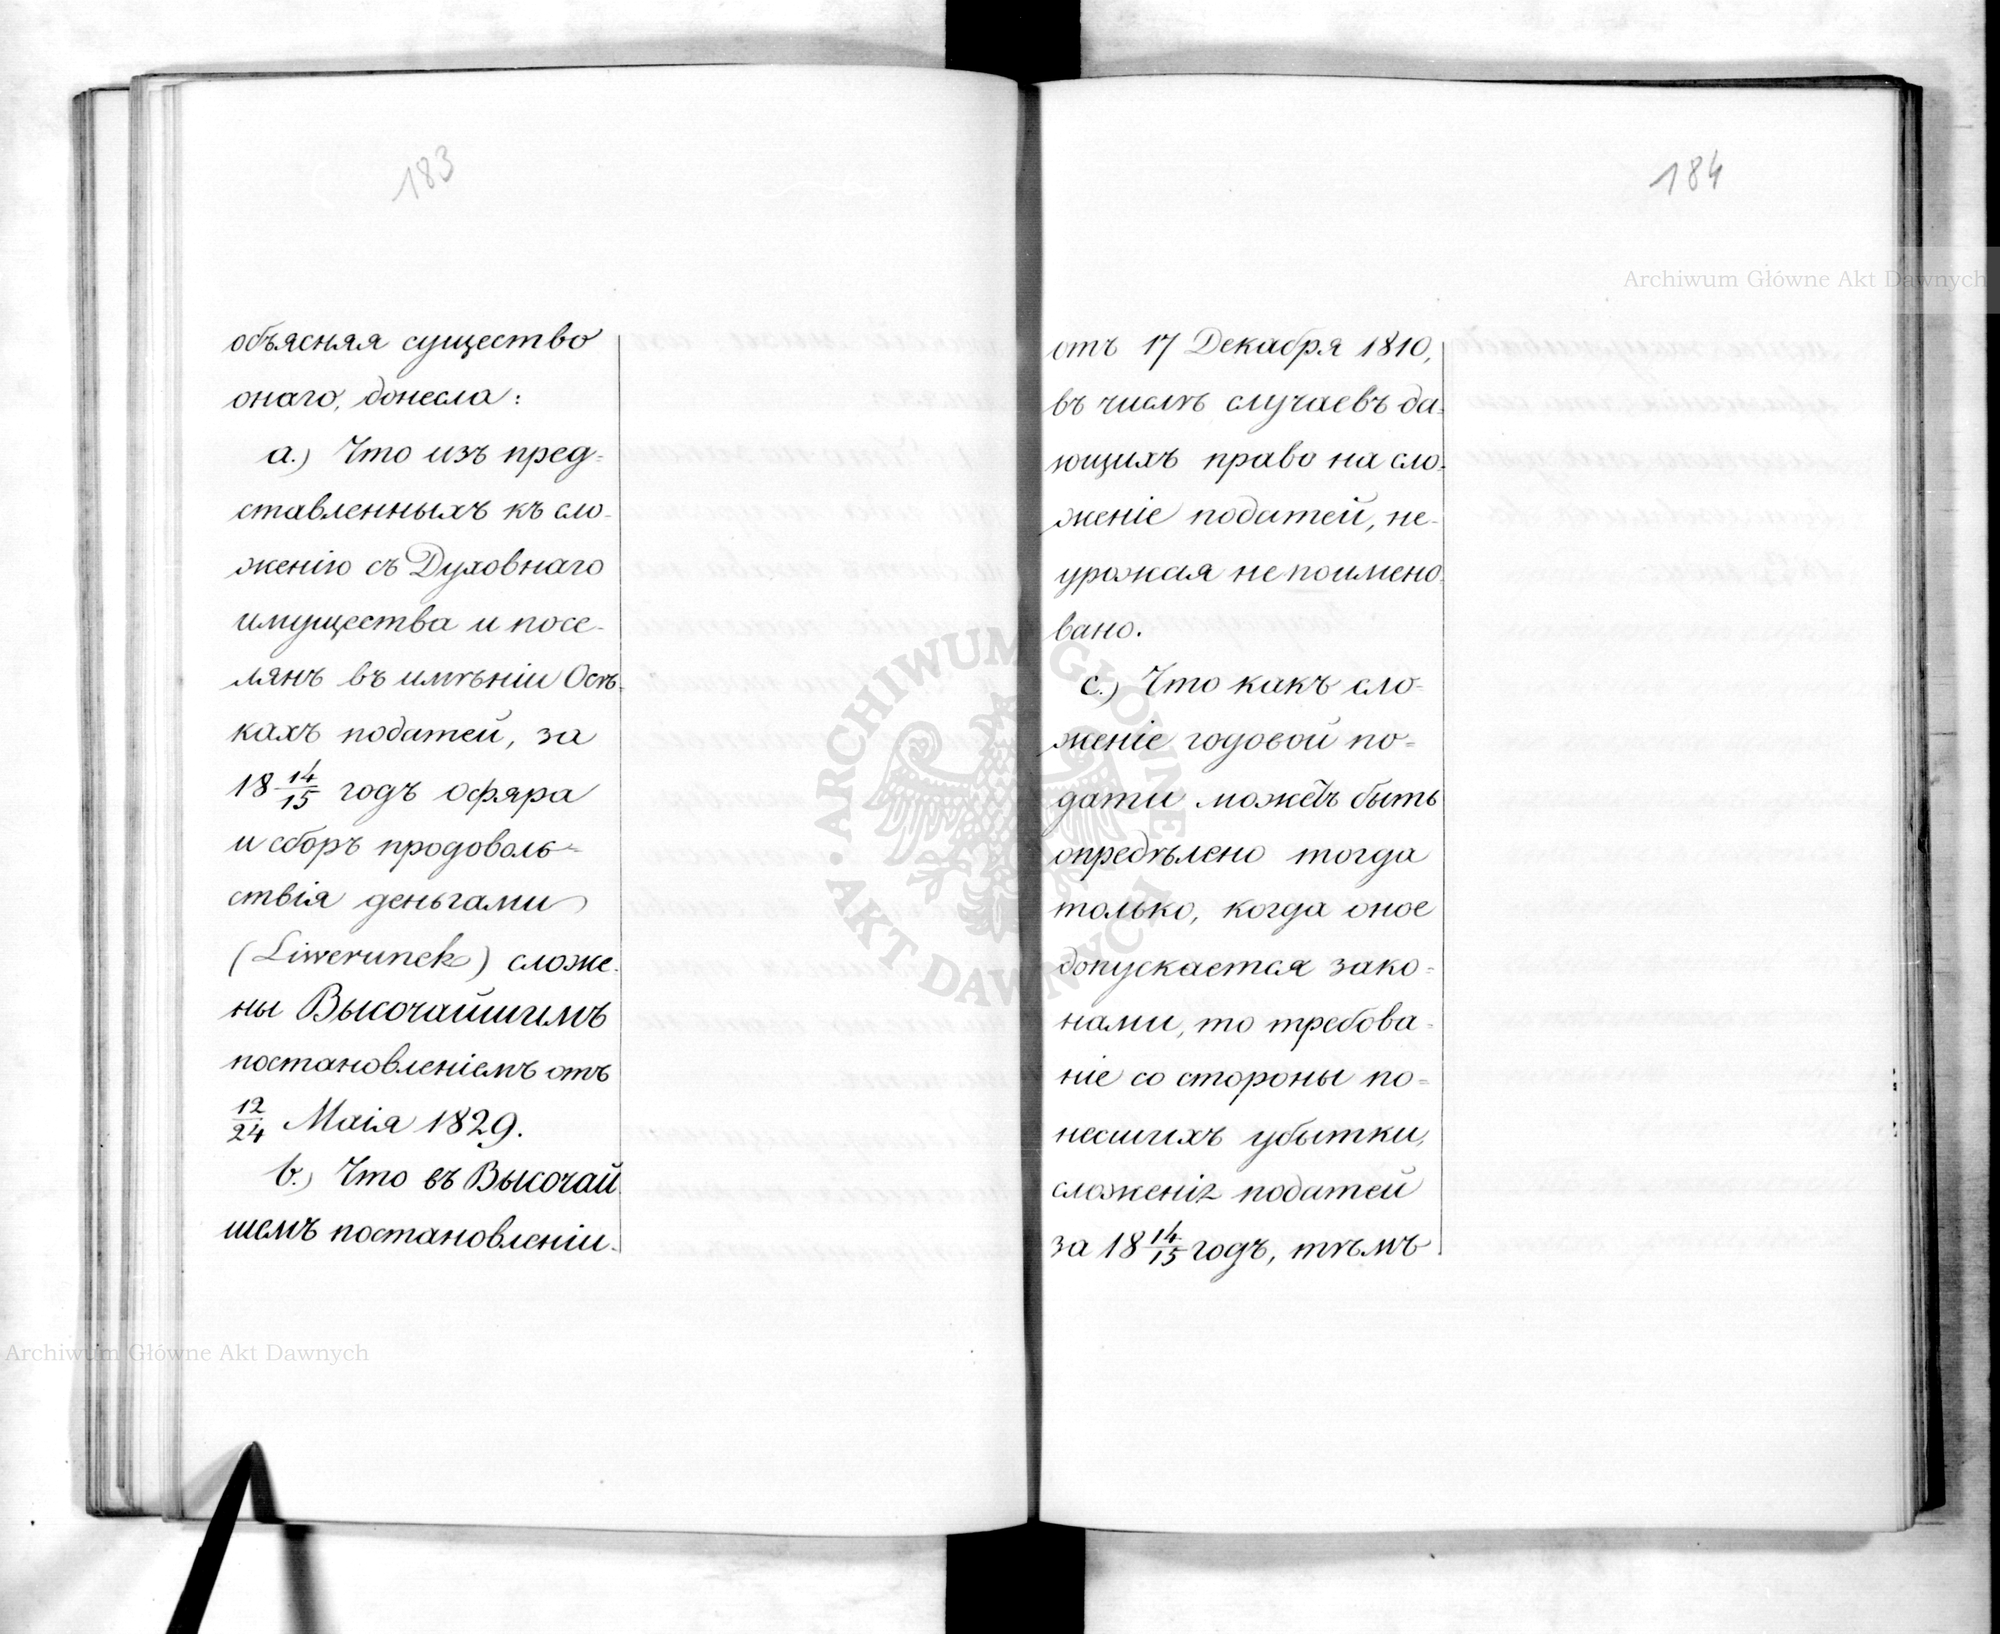 183
объясняя существо
онаго, донесла:
a.) Что изъ пред-
ставленныхъ къ сло-
женію съ Духовнаго
имущества и посе-
лянъ въ имѣніи Осѣ-
кахъ податей, за
18 14/15 годъ офяра
и сборъ продоволь-
ствія деньгами
(Liwerunek) сложе-
ны Высочайшимъ
постановленіемъ отъ
12/24 Маія 1829.
b.) Что въ Высочай
шемъ постановленіи
184
отъ 17 Декабря 1810,
въ числѣ случаевъ да-
ющихъ право на сло-
женіе податей, не-
урожая не поимено-
вано.
c.) Что какъ сло-
женіе годовой по-
дати можетъ быть
опредѣлено тогда
только, когда оное
допускается зако-
нами, то требова-
ніе со стороны по-
несшихъ убытки,
сложенія податей
за 18 14/15 годъ, тѣмъ
Archiwum Główne Akt Dawnych
ARCHIWUM GŁÓWNE AKT DAWNYCH
Archiwum Główne Akt Dawnych